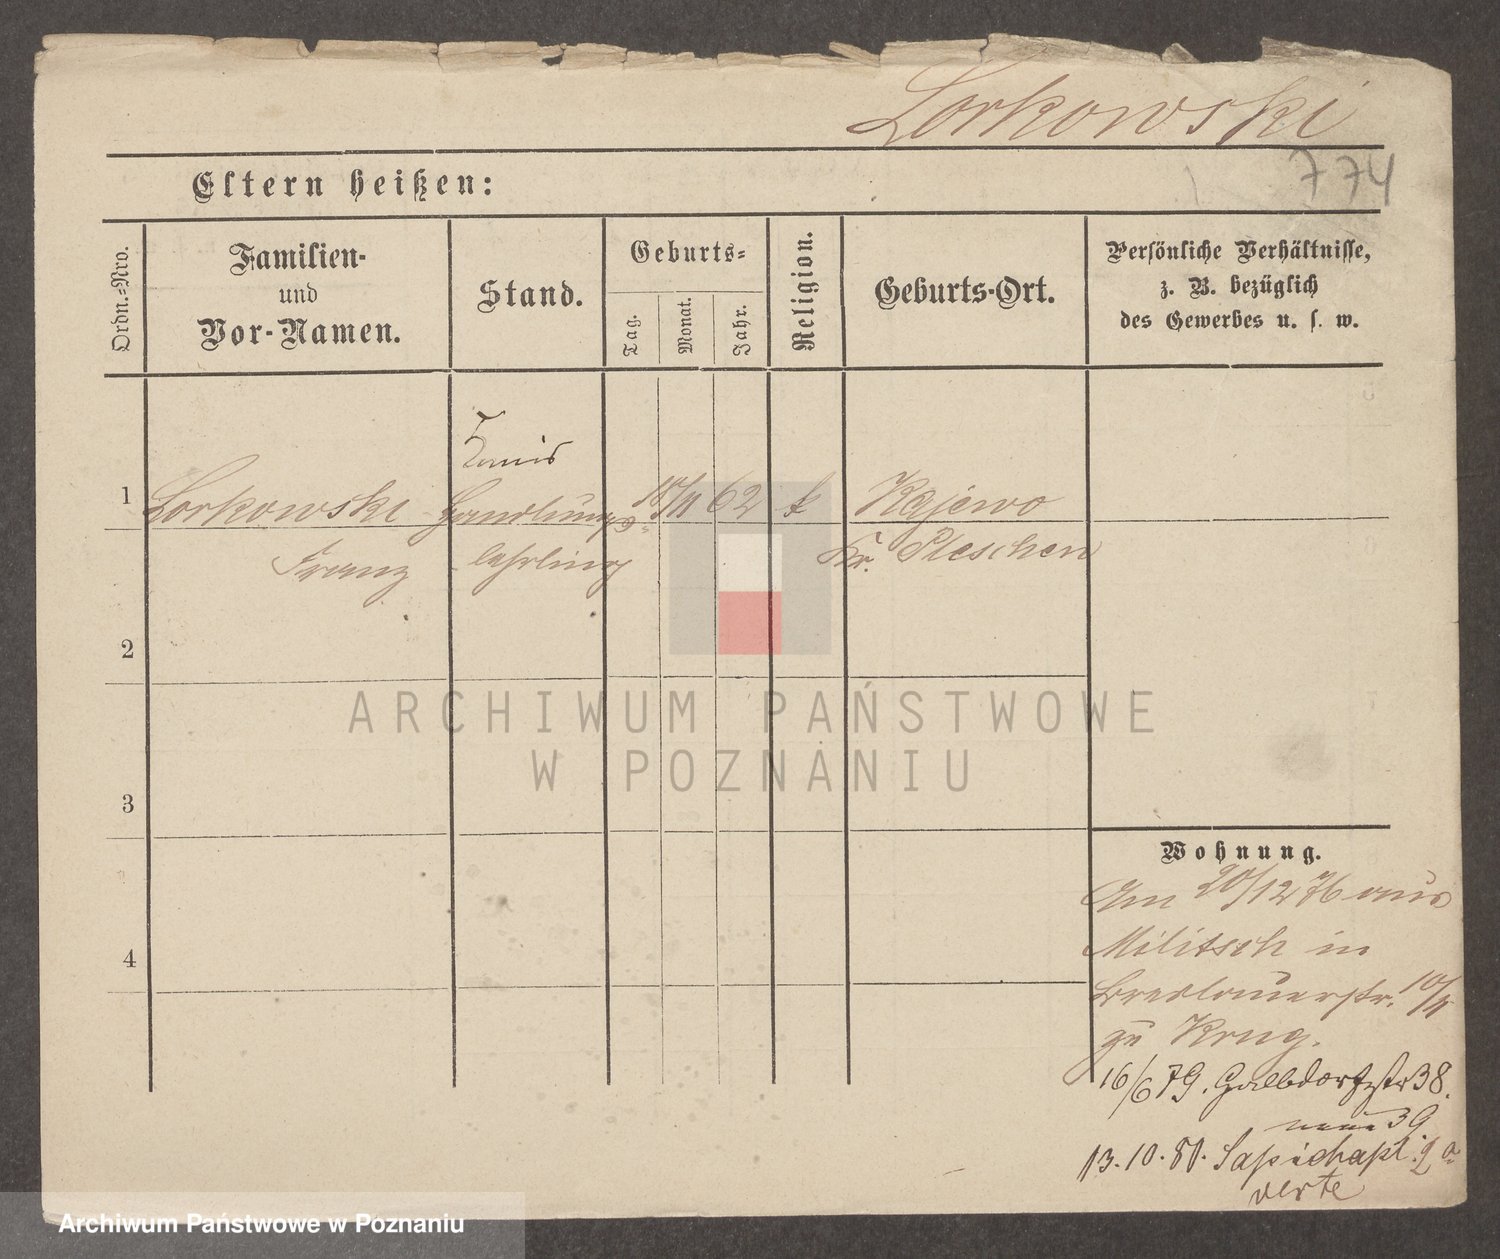 Lorkowski
774
Eltern heißen:
Ordn.-Nro.
Familien-
und
Vor-Namen.
Stand.
Geburts-
Tag.
Monat.
Jahr.
Religion.
Geburts-Ort.
Persönliche Verhältnisse,
z. B. bezüglich
des Gewerbes u. s. w.
1
Lorkowski Handlungs- 18/11 62 k Kajewo
Franz lehrling Kr. Pleschen
2
3
4
Wohnung.
Am 20/12 76 aus
Militsch in
Breslauerstr. 10/11
zu Krug.
16/6 79. Halbdorfstr 38.
neue 39
13.10.81. Sapiehapl. 2 a
verte
ARCHIWUM PAŃSTWOWE
W POZNANIU
Archiwum Państwowe w Poznaniu